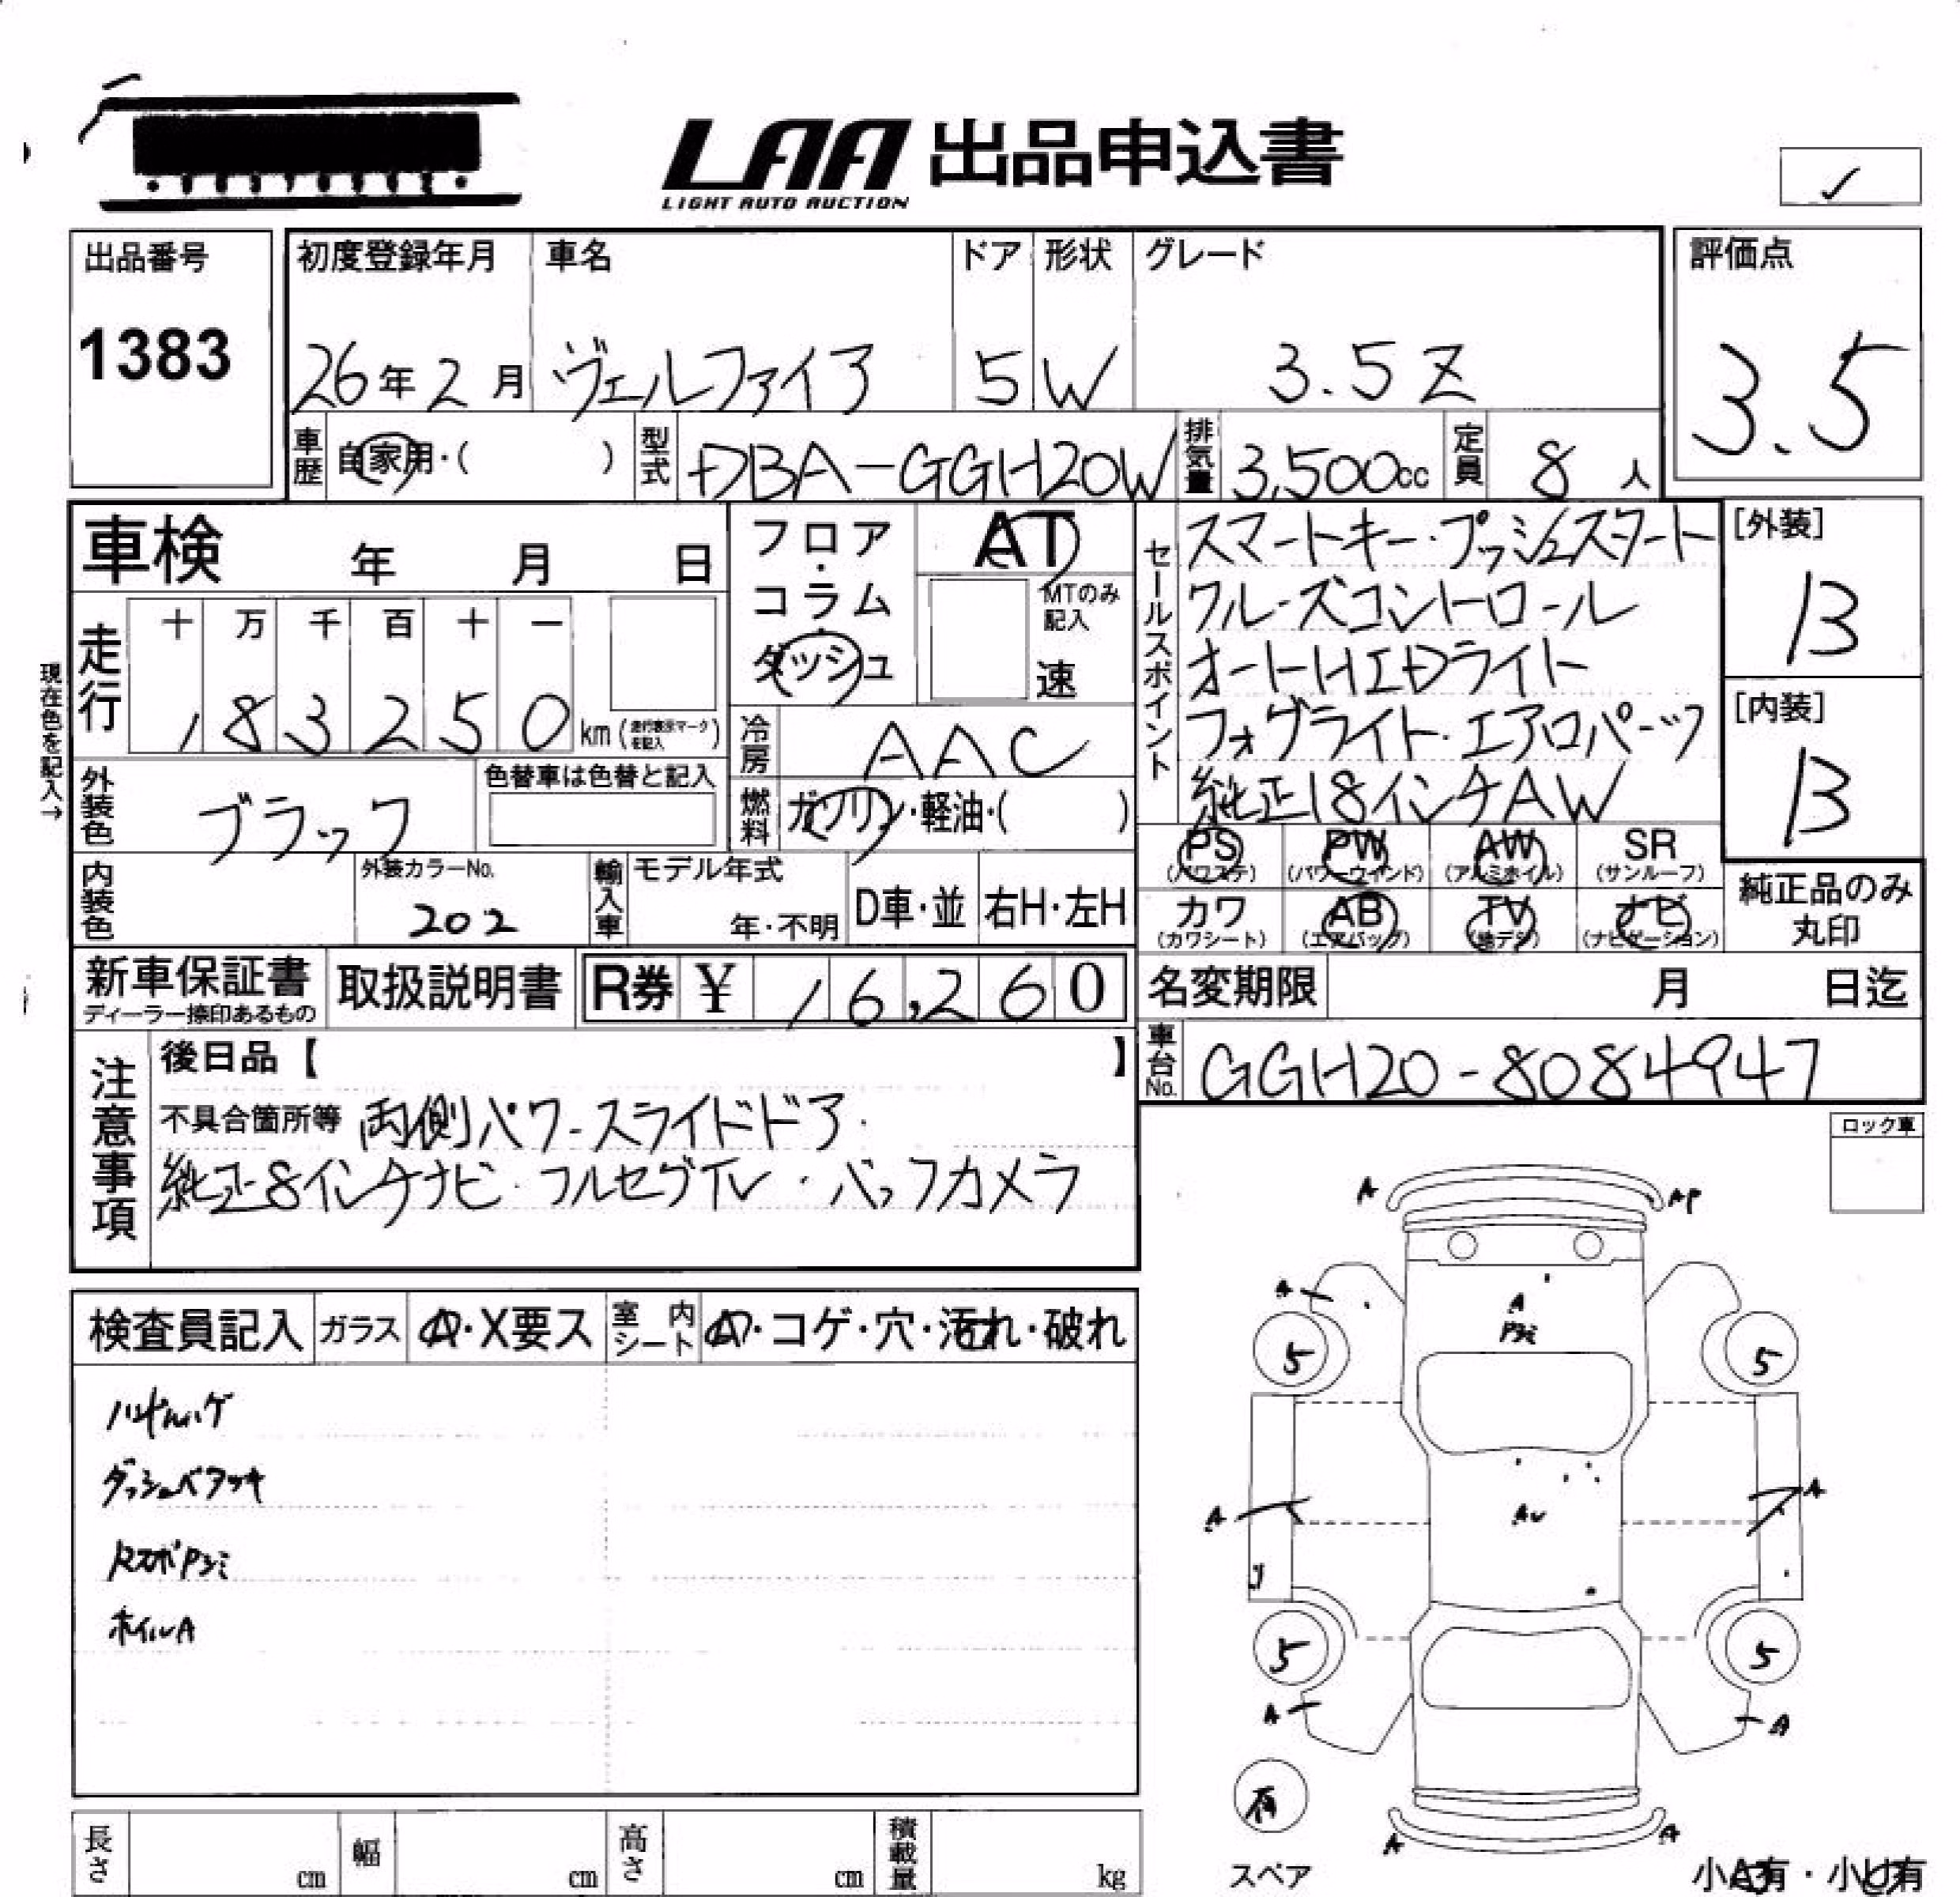 LAA 出品申込書
LIGHT AUTO AUCTION
✓
出品番号
1383
初度登録年月
26年2月
車名
ヴェルファイア
ドア
5
形状
W
グレード
3.5Z
評価点
3.5
車歴
自家用・( )
型式
DBA-GGH20W
排気量
3,500cc
定員
8人
車検 年 月 日
現在色を記入→
走行
十 万 千 百 十 一
183250 km (走行表示マークを記入)
フロア・コラム・ダッシュ
AT
MTのみ記入
速
冷房
AAC
外装色
ブラック
色替車は色替と記入
燃料
ガソリン・軽油・( )
内装色
外装カラーNo.
202
輸入車
モデル年式
年・不明
D車・並
右H・左H
セールスポイント
スマートキー・プッシュスタート
クルーズコントロール
オートHIDライト
フォグライト・エアロパーツ
純正18インチAW
[外装]
B
[内装]
B
PS
(パワステ)
PW
(パワーウインド)
AW
(アルミホイル)
SR
(サンルーフ)
カワ
(カワシート)
AB
(エアバッグ)
TV
(地デジ)
ナビ
(ナビゲーション)
純正品のみ
丸印
新車保証書
ディーラー捺印あるもの
取扱説明書
R券 ¥ 16,260
名変期限 月 日迄
車台No.
GGH20-8084947
注意事項
後日品【 】
不具合箇所等 両側パワースライドドア・
純正8インチナビ・フルセグTV・バックカメラ
ロック車
検査員記入
ガラス
A・X要ス
室内シート
A・コゲ・穴・汚れ・破れ
ハンドルハゲ
ダッシュベタツキ
ホイルA
A
AP
A
A
5
5
A
A
AU
5
5
A
A
有
スペア
A
A
小A有・小U有
長さ cm
幅 cm
高さ cm
積載量 kg